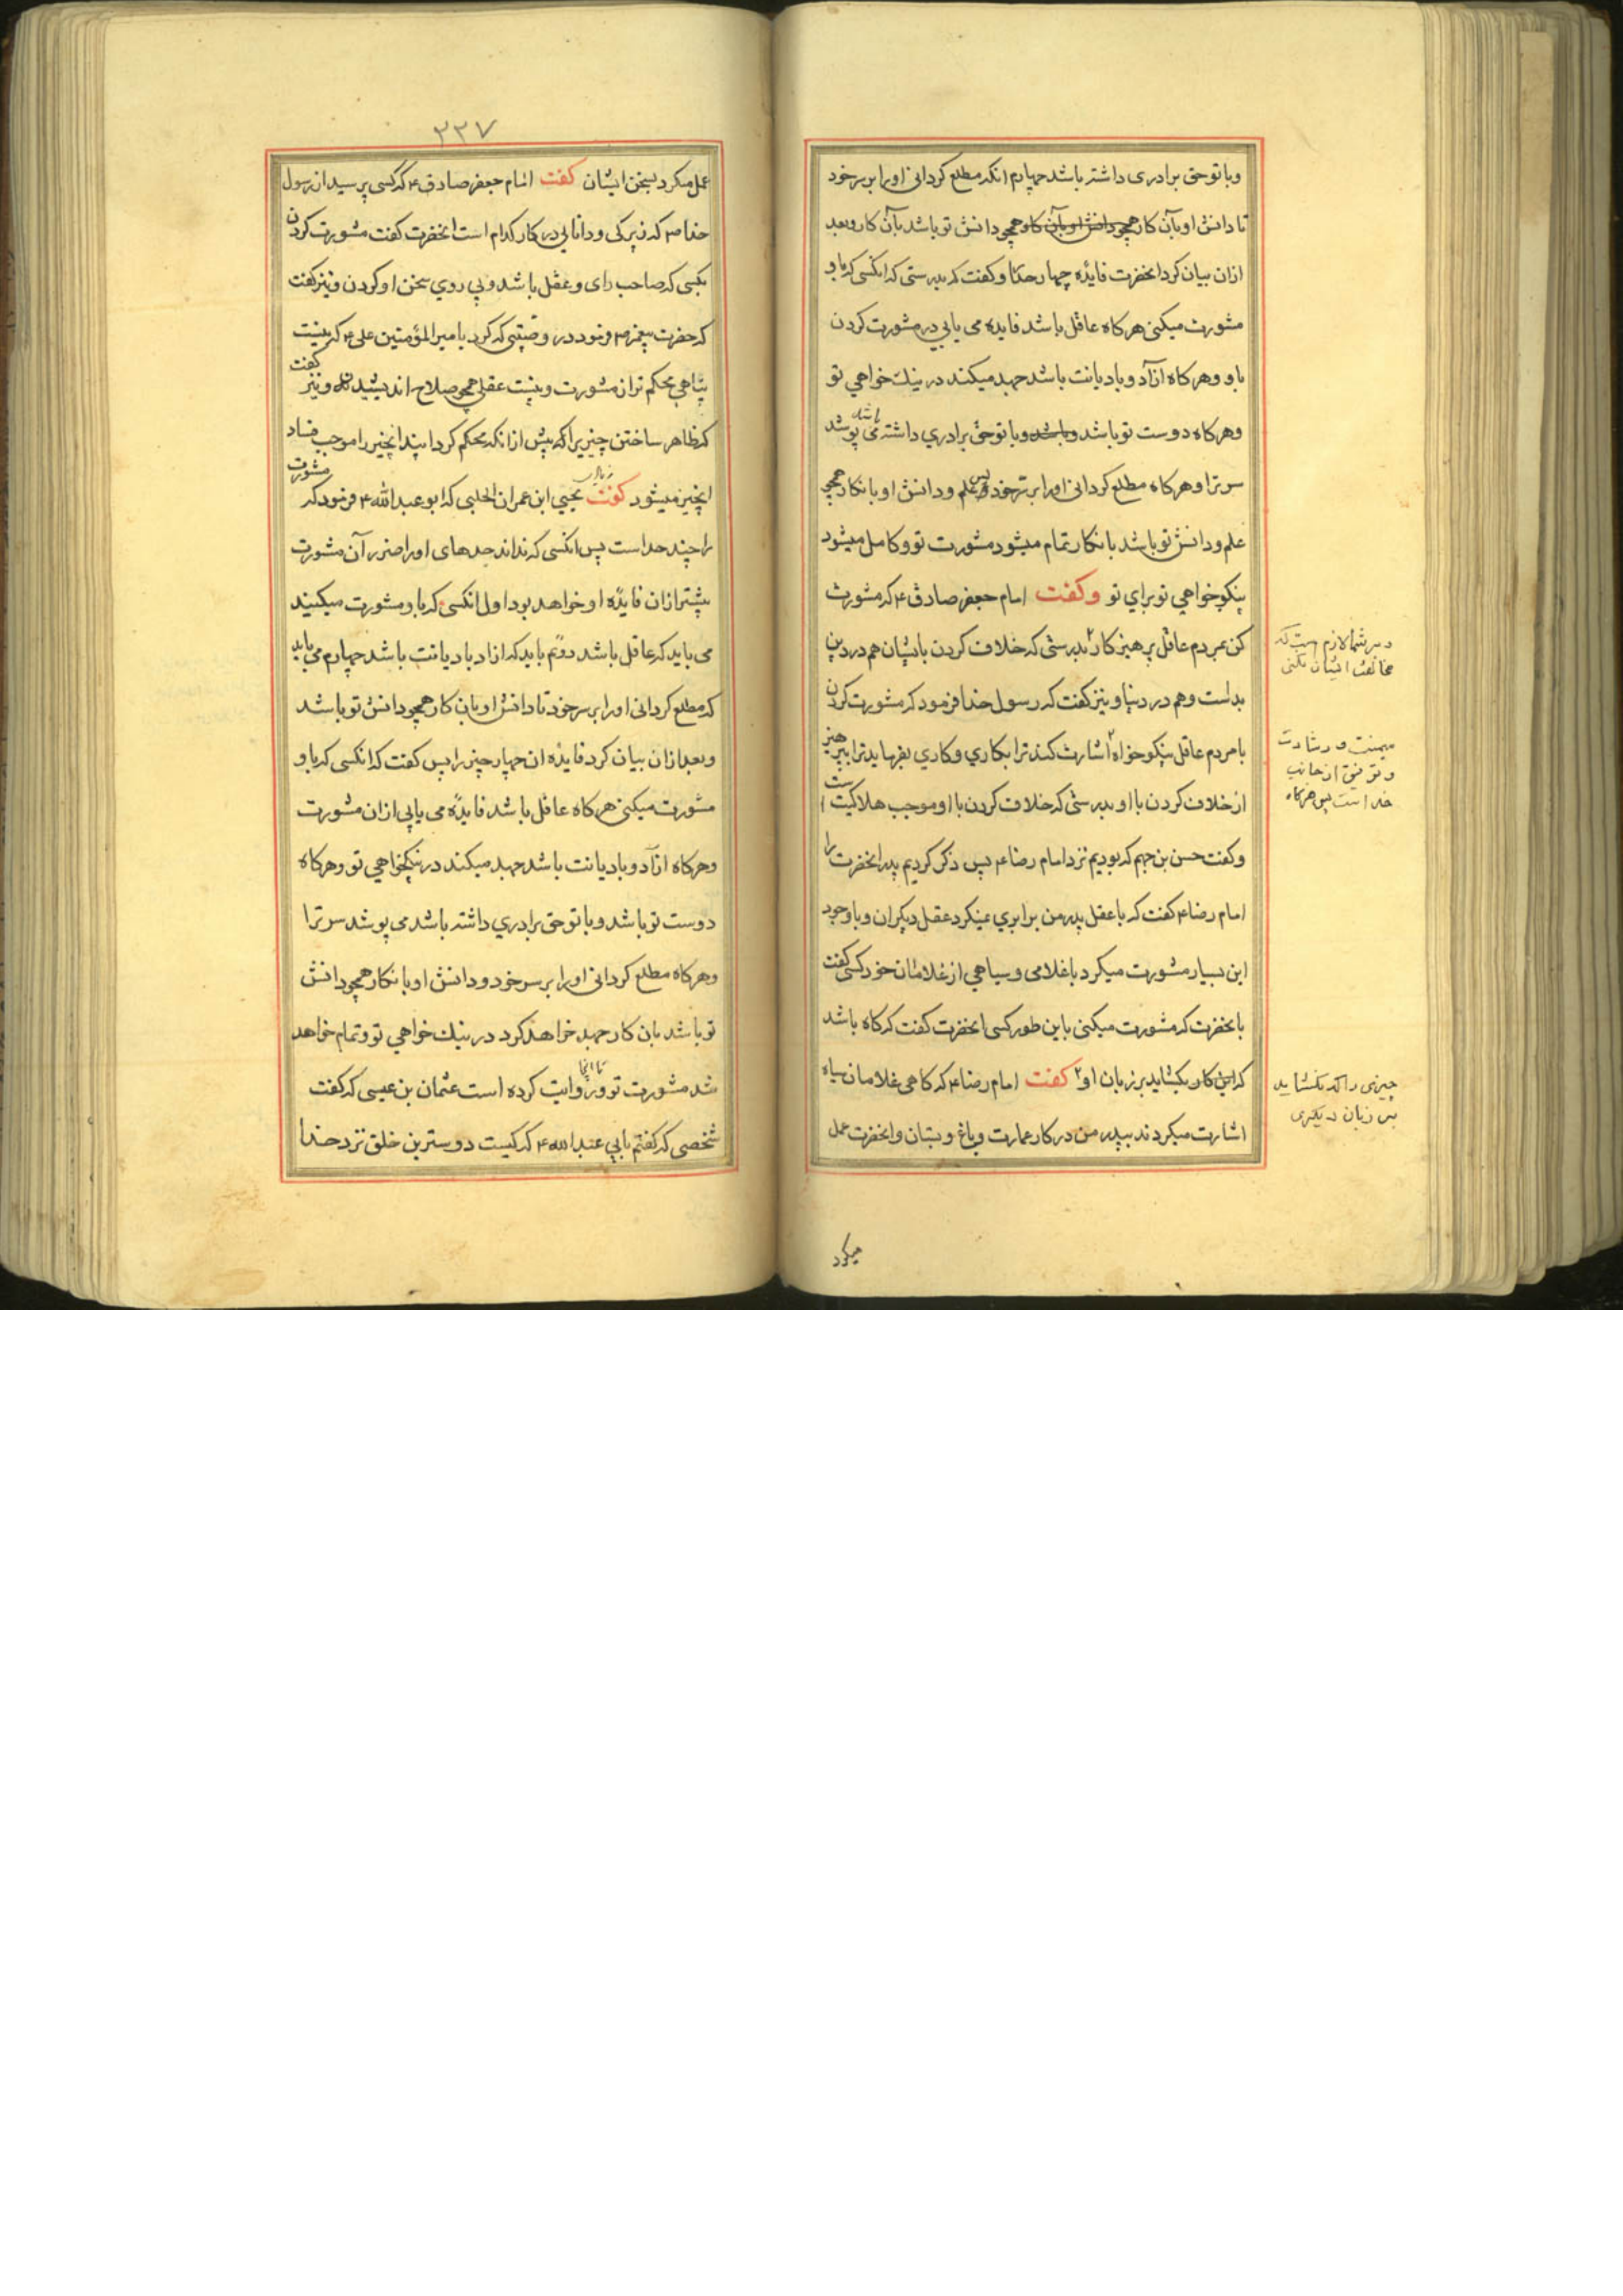 وباتو حق برادری داشته باشد چهارم انکه مطلع کردانی اورا بر سر خود
تا دانش او بآن کار همچو دانش او بآن کار همچو دانش تو باشد بآن کار وبعد
ازان بیان کرد انحضرت فایده چهار حد را وکفت که بدرستی که انکسی که باو
مشورت میکنی هرکاه عاقل باشد فایده می یابی در مشورت کردن
باو وهرکاه ازاد وبادیانت باشد جهد میکند در نیك خواهی تو
وهرکاه دوست تو باشد وباشد وبا تو حق برادری داشته باشد می پوشد
سر ترا وهرکاه مطلع کردانی اورا بر سر خود پس علم ودانش او بانکار همچو
علم ودانش تو باشد بانکار تمام میشود مشورت تو وکامل میشود
نیکو خواهی تو برای تو وکفت امام جعفر صادق ع که مشورت
کن بمردم عاقل پرهیز کار بدرستی که خلاف کردن بایشان هم در دین
بداست وهم در دنیا ونیز کفت که رسول خدا فرمود که مشورت کردن
بامردم عاقل نیکو خواه اشارت کند ترا بکاری وکاری بفرماید ترا بپرهیز
از خلاف کردن با او بدرستی که خلاف کردن با او موجب هلاکیت است
وکفت حسن بن جهم که بودیم نزد امام رضا ع پس ذکر کردیم پدر انحضرت را
امام رضا ع کفت که با عقل پدر من برابری نمیکرد عقل دیکران وباوجود
این بسیار مشورت میکرد با غلامی وسیاهی از غلامان خود کسی کفت
بانحضرت که مشورت میکنی باین طور کسی انحضرت کفت که کاه باشد
که این کار بکشاید بر زبان او کفت امام رضا ع که کاهی غلامان سیاه
اشارت میکردند بپدر من در کار عمارت وباغ وبستان وانحضرت عمل
میکرد
در بر شما لازم است که
مخالفت ایشان نکنی
میمنت ورشادت
وتوفیق از جانب
خدا است پس هرکاه
چیزی را که نکشاید
بر زبان دیکری
۳۳۷
عمل میکرد بسخن ایشان کفت امام جعفر صادق ع که کسی پرسید از رسول
خدا ص که زیرکی ودانایی در کار کدام است انحضرت کفت مشورت کردن
بکسی که صاحب رای وعقل باشد وپی روی سخن او کردن ونیز کفت
که حضرت پیغمبر ص فرمود در وصیتی که کرد بامیر المؤمنین علی ع که نیست
پناهی محکم تر از مشورت ونیست عقلی همچو صلاح اندیشیدن ونیز کفت
که ظاهر ساختن چیزیرا که پیش از انکه محکم کرداند انچیز را موجب فساد
انچیز میشود کفت یحیی ابن عمران الحلبی که ابو عبد الله ع فرمود که مشورت
را چند حد است پس انکسی که نداند حدهای اورا ضرر آن مشورت
بیشتر ازان فایده او خواهد بود اول انکسی که باو مشورت میکنند
می باید که عاقل باشد دوم باید که ازاد بادیانت باشد چهارم می باید
که مطلع کردانی اورا بر سر خود تا دانش او بان کار همچو دانش تو باشد
وبعد ازان بیان کرد فایده ان چهار چیز را پس کفت که انکسی که باو
مشورت میکنی هرکاه عاقل باشد فایده می یابی ازان مشورت
وهرکاه ازاد وبادیانت باشد جهد میکند در نیکخواهی تو وهرکاه
دوست تو باشد وبا تو حق برادری داشته باشد می پوشد سر ترا
وهرکاه مطلع کردانی اورا بر سر خود ودانش او بانکار همچو دانش
تو باشد بان کار جهد خواهد کرد در نیك خواهی تو وتمام خواهد
شد مشورت تو وروایت کرده است عثمان بن عیسی که کفت
شخصی که کفتم بابی عبد الله ع که کیست دوسترین خلق نزد خدا